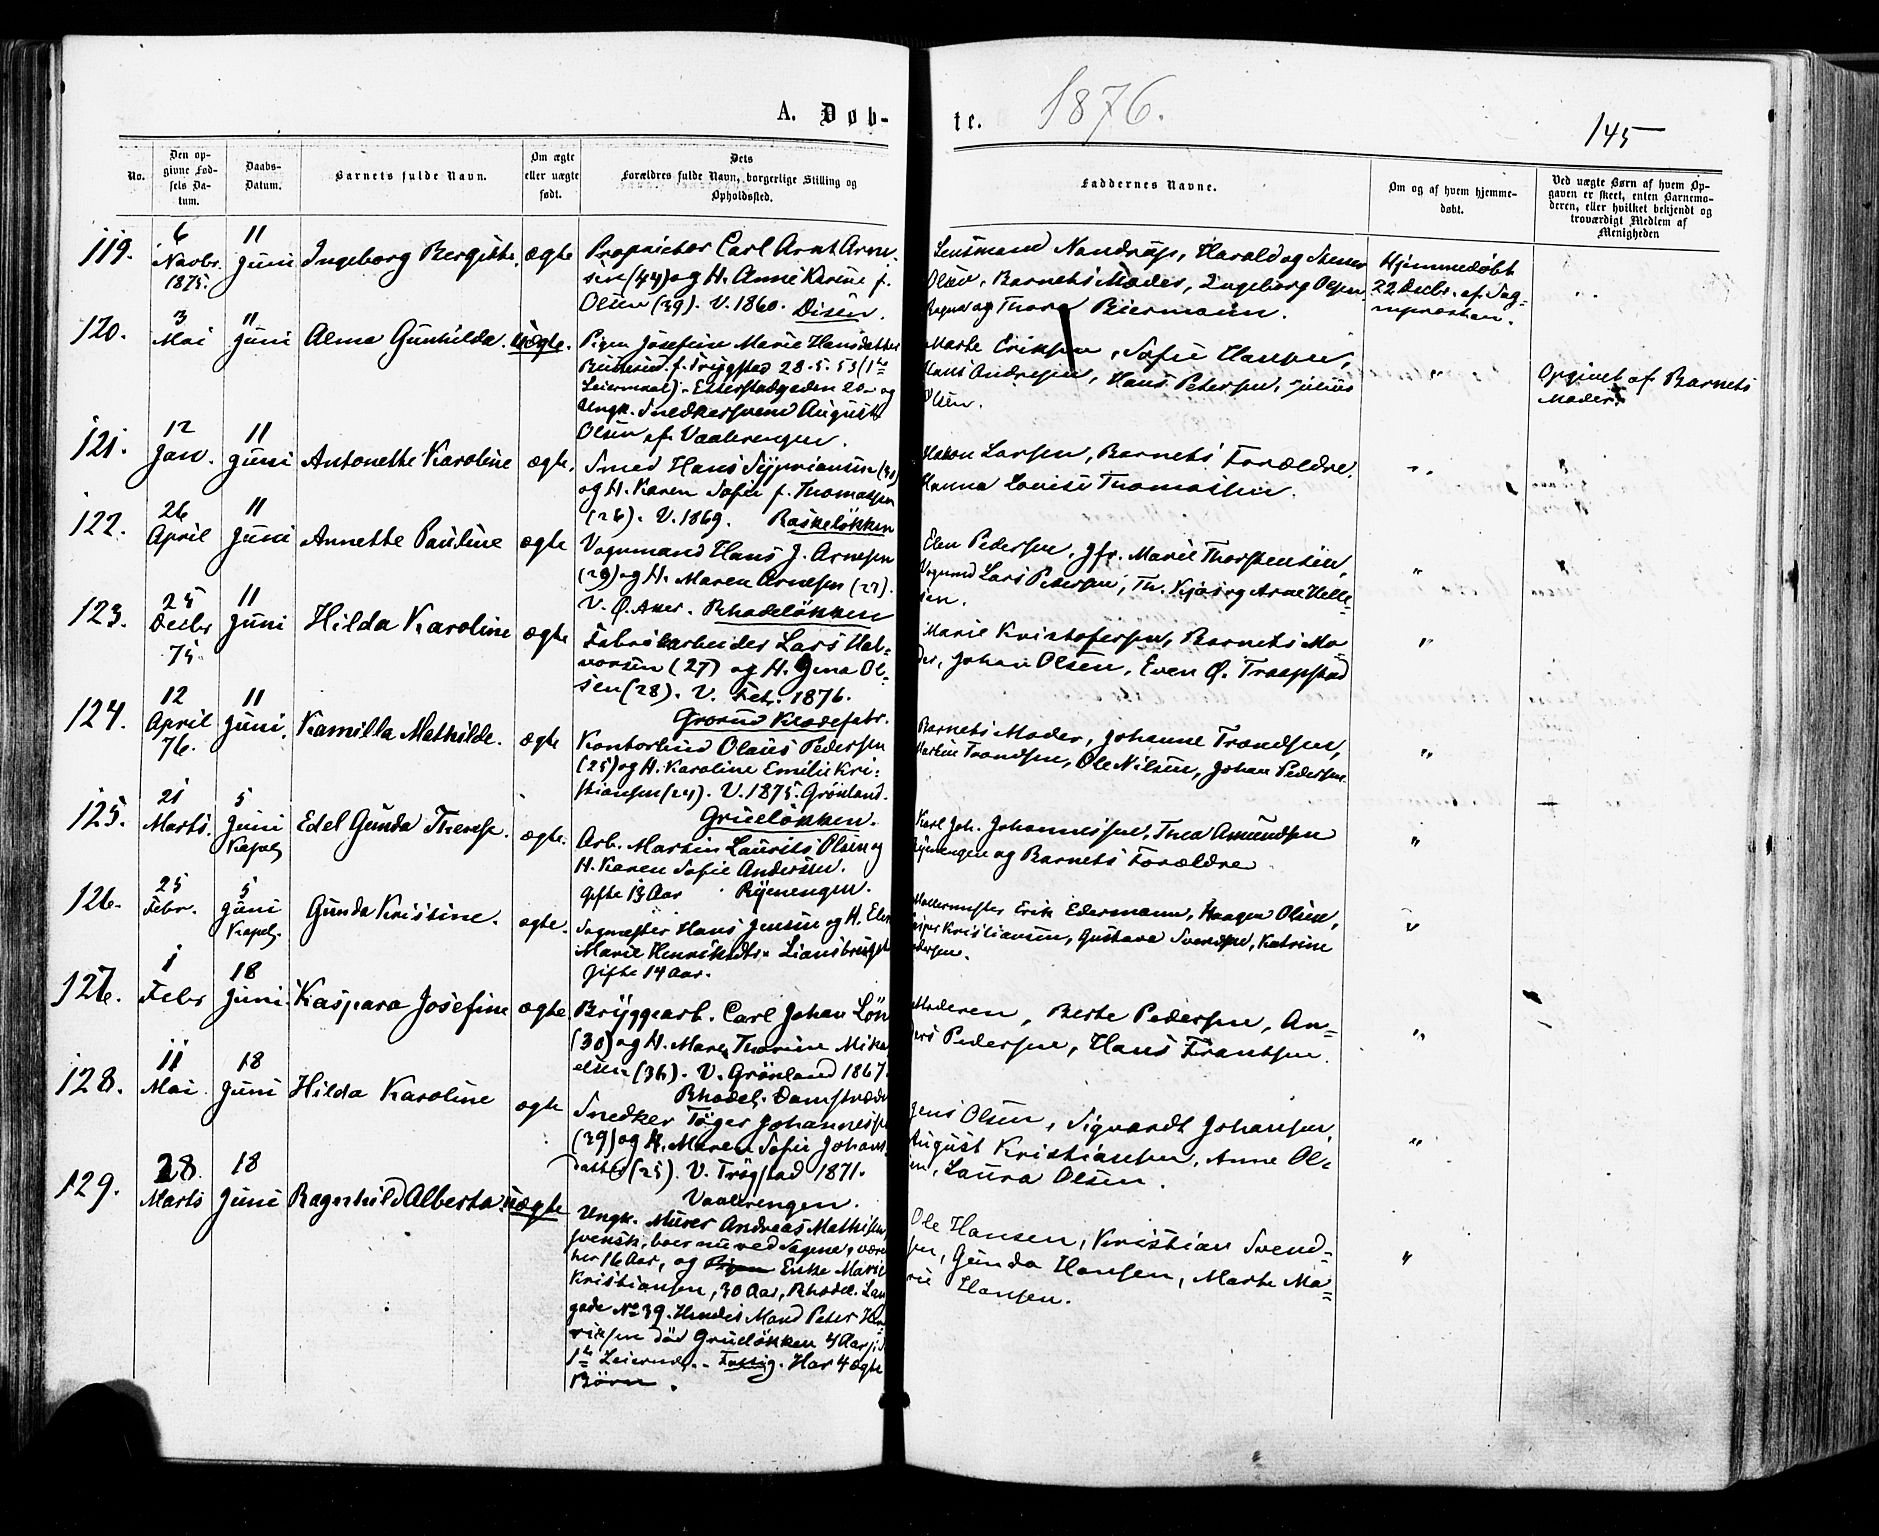 A. Døb-
te. 1876.
145
No.
Den op-
givne Fød-
sels Da-
tum.
Daabs-
Datum.
Barnets fulde Navn.
Om ægte
eller uægte
født.
Dets
Forældres fulde Navn, borgerlige Stilling og
Opholdssted.
Faddernes Navne.
Om og af hvem hjemme-
døbt.
Ved uægte Børn af hvem Op-
gaven er skeet, enten Barnemo-
deren, eller hvilket bekjendt og
troværdigt Medlem af
Menigheden
119.
6
Novbr.
1875.
11
Juni
Ingeborg Bergitte.
ægte
Proprietær Carl Arnt Arne-
sen (44) og H. Anne Karine f.
Olsen (39). V. 1860. Disen.
Lensmand Nandrup, Harald og
Olsen, Barnets Moder, Ingeborg Olsen,
og Thora Biermann.
Hjemmedøbt
22 Decbr. af Sog-
nepræsten.
120.
3
Mai
11
Juni
Alma Gunhilda.
uægte.
Pigen Josefine Marie Hansdatter
f. Trygstad 28-5-53 (1ste
Leiermaal). Etterstadgaden 20 og
Ungk. Snedkersvend August
Olsen af Vaalerengen.
Marte Eriksen, Sofie Hansen,
Hans Andresen, Hans Petersen, Julius
Olsen.
"
Opgivet af Barnets
Moder.
121.
12
Jan.
11
Juni
Antonette Karoline
ægte.
Smed Hans Syprianssen
og H. Karen Sofie f. Thomassen
(26). V. 1869. Baskeløkken
Hakon Larsen, Barnets Forældre,
Hanna Louise Thomassen.
"
122.
26
April
11
Juni
Annette Pauline
ægte
Vognmand Hans J. Arnesen
(29) og H. Maren Arnesen (27).
V. Ø. Aker. Rhodeløkken
Elen Pedersen, Jfr. Marie Thorstensen,
Vognmd Lars Petersen, Th. Kjos og Arne Helle-
sen.
"
123.
25
Decbr
75
11
Juni
Hilda Karoline
ægte
Fabrikarbeider Lars Hal-
vorsen (27) og H. Gina Ol-
sen (28). V. Feb. 1876.
Grorud Klædefabr.
Marie Kristofersen, Barnets Mo-
der, Johan Olsen, Even Ø.
"
124.
12
April
76.
11
Juni.
Kamilla Mathilde.
ægte
Kontorbud Olaus Pedersen
(25) og H. Karoline Emilie Kri-
stiansen (24). V. 1875. Grønland.
Grueløkken.
Barnets Moder, Johanne Trondsen,
Martin Trondsen, Ole Nilsen, Johan Pedersen
"
125.
21
Marts.
5
Juni
Kapel
Edel Gunda Therese.
ægte.
Arb. Martin Laurits Olsen og
H. Karen Sofie Andersen.
Gifte 13 Aar Ryenengen.
Karl Joh. Johannessen, Thea Amundsen
Ryenengen og Barnets Forældre
"
126.
25
Febr.
5
Juni
Kapel.
Gunda Kristine.
ægte.
Sagmester Hans Jensen og H. Elen
Marie Henriksdtr. Liansbruget
Gifte 14 Aar.
Møllermester Erik Edermann, Haagen Olsen,
Kristiansen, Gustava Svendsen, Katrine
Pedersen.
"
127.
1
Febr
18
Juni.
Kaspara Josefine
ægte.
Bryggearb. Carl Johan
(30) og H. Maren Thorine Mika-
elsen (36). V. Grønland 1867.
Rhodel. Damstræde
Moderen, Berte Pedersen, An-
ders Pedersen, Hans Frantsen.
"
128.
11
Mai
18
Juni
Hilda Karoline
ægte
Snedker Tøger Johannessen
(39) og H. Maren Sofie Johans-
datter (25). V. Trøgstad 1871.
Vaalerengen.
Jens Olsen, Sigvardt Johansen,
August Kristiansen, Anne Ol-
sen, Laura Olsen.
"
129.
28
Marts
18
Juni
Ragnhild Alberta.
uægte
Ungk. Murer Andreas Mathisen,
svensk, boer nu ved Sagene, været
her 16 Aar, og Enke Marie
Kristiansen, 30 Aar, Rhodel. Lan
gade No 39. Hendes Mand Peter Hen
riksen død Grueløkken 4 Aar
1ste Leierm. Fattig. Har 4 ægte
Børn.
Ole Hansen, Kristian Svend-
sen, Gunda Hansen, Marte Ma-
rie Hansen.
"